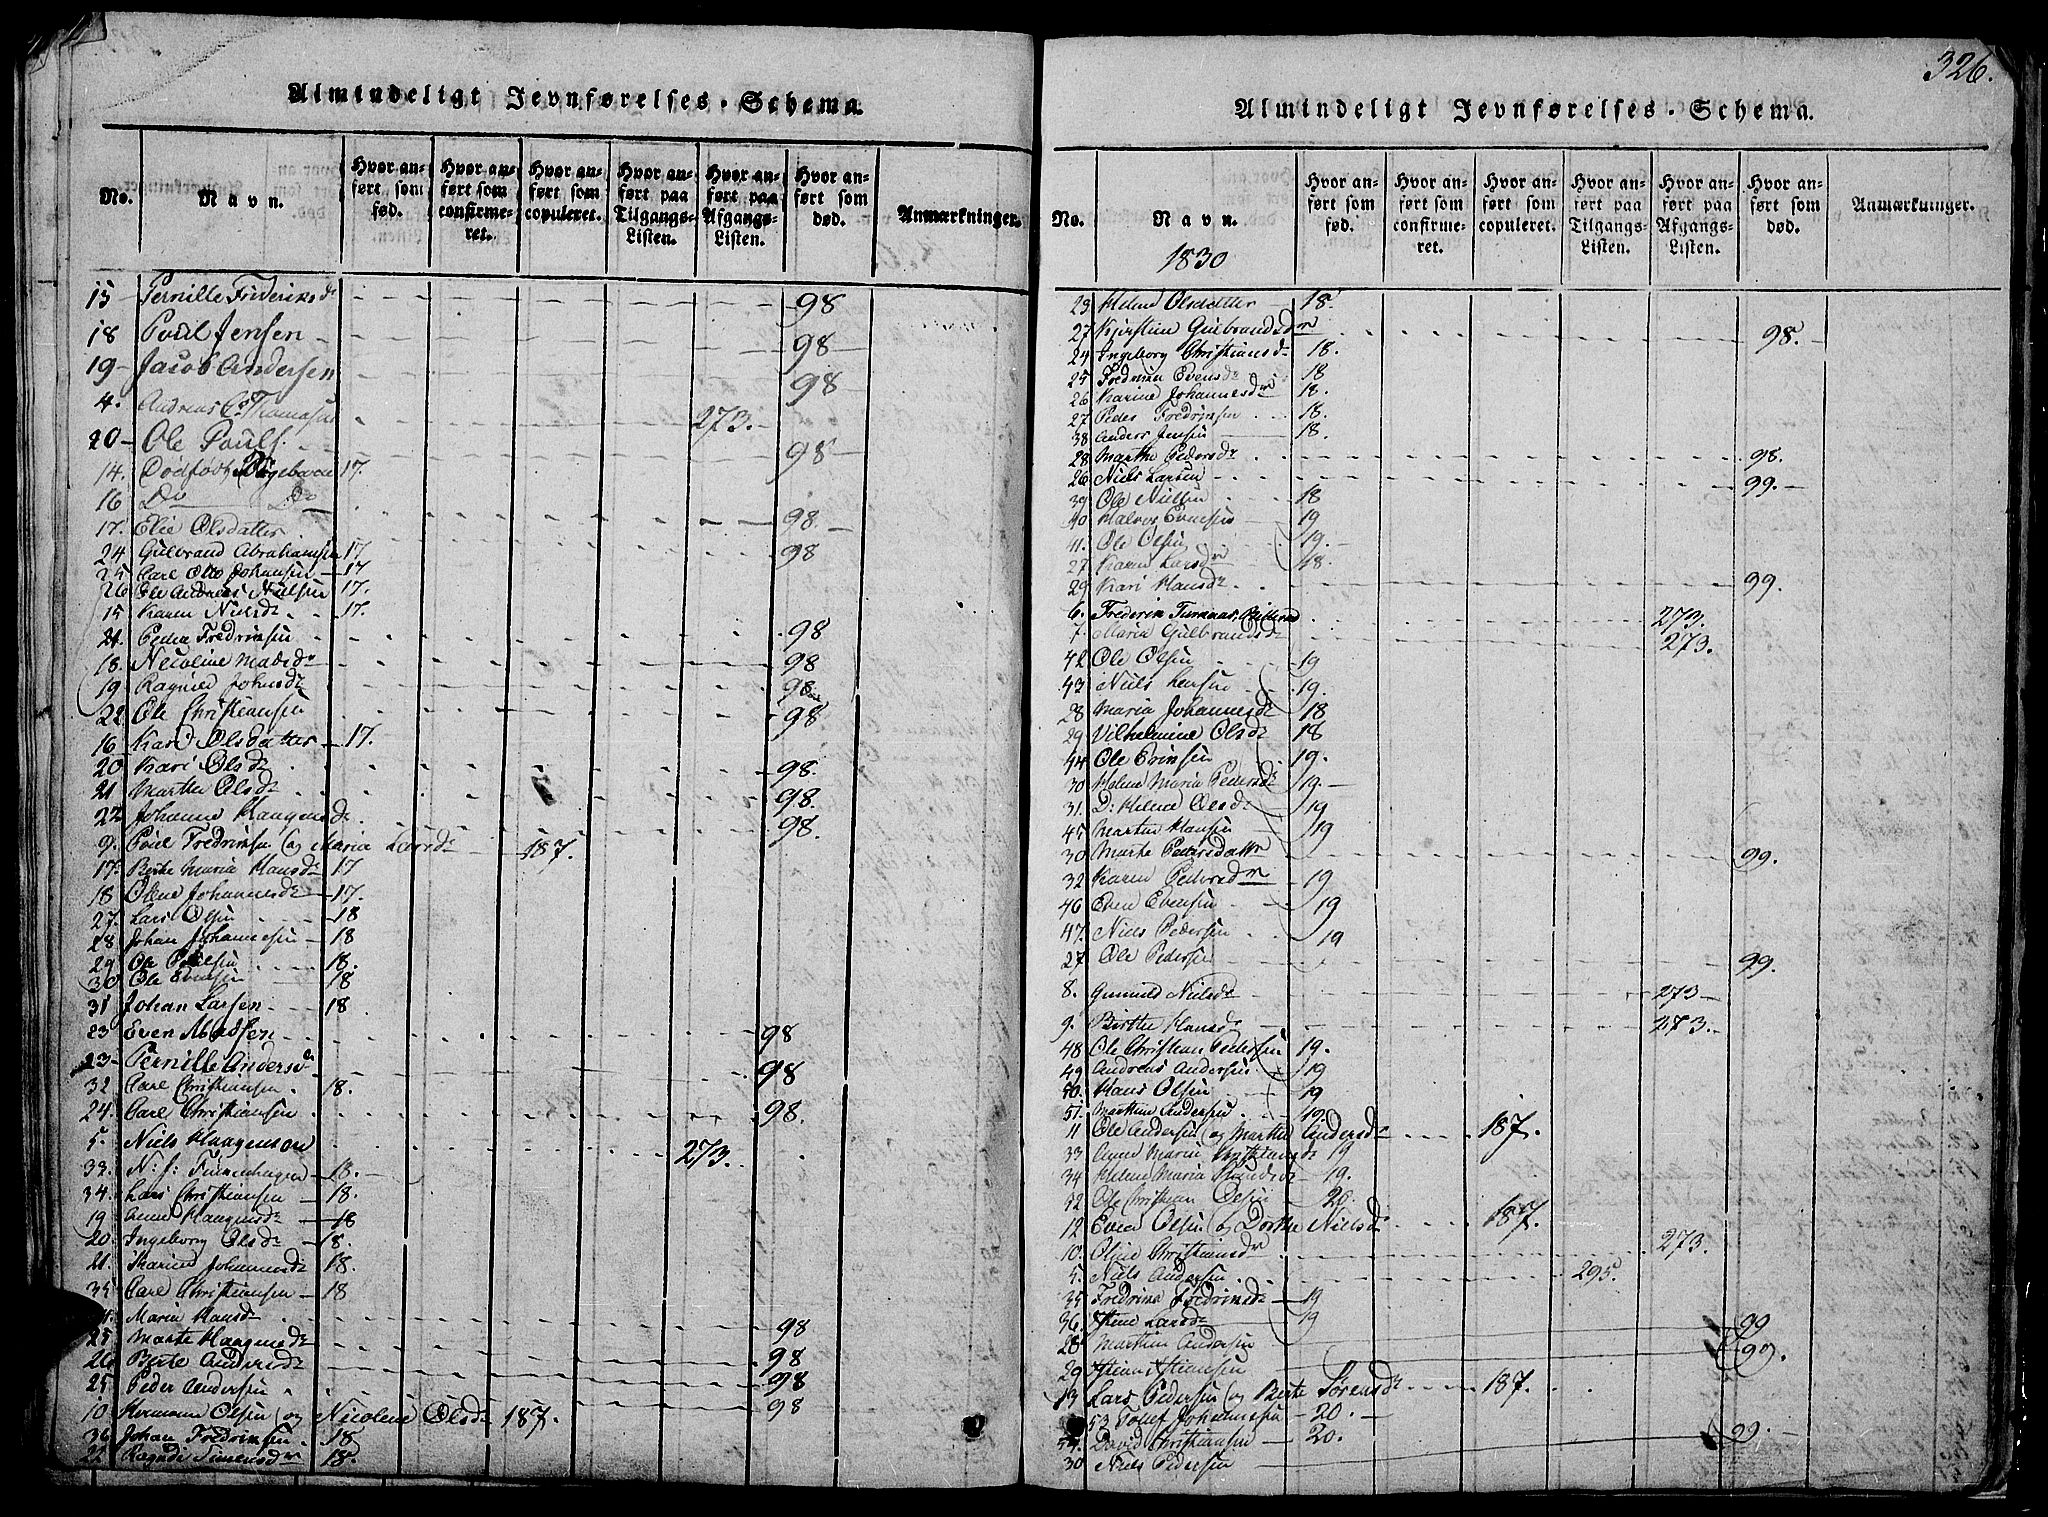 Almindeligt Jevnførelses-Schema.
No.
Navn.
Hvor anført som fød.
Hvor anført som confirmeret.
Hvor anført som copuleret.
Hvor anført paa Tilgangs-Listen.
Hvor anført paa Afgangs-Listen.
Hvor anført som død.
Anmærkninger.
15 Pernille Frideriksdr 98
18 Poul Jensen 98
19 Jacob Andersen 98
4. Andreas C. Thomasen 273.
20 Ole Pouls. 98
14. Dødfødt Drengebarn 17.
16 Do Do
17. Elie Olsdatter 98
24 Gulbrand Abrahamsen 17 98
25 Carl Otto Johansen 17
26 Ole Andreas Nielsen 17.
15 Karen Nielsdr 17.
21. Peder Fredriksen 98
18. Nicoline Madsdr 98
19 Ragnild Johnsdr 98
22 Ole Christiansen 98
16 Kari Olsdatter 17.
20 Kari Olsdr 98.
21 Marthe Olsdr 98.
22 Johanne Haagensdr 98.
9. Poul Fredriksen og Maria Larsdr 187.
17 Birthe Maria Hansdr 17
18 Oline Johannesdr 17.
27. Lars Olsen 18
28 Johan Johannesen 18
29 Ole Poulsen 18.
30 Ole Evensen 18
31 Johan Larsen 18
23 Even Madsen 98
23 Pernille Andersdr 98
32 Carl Christiansen 18.
24. Carl Christiansen 98.
5. Niels Haagensen 273.
33. N: J: Tunnehagen 18.
34. Lars Christiansen 18.
19. Anne Haagensdr 18
20. Ingeborg Olsdr 18.
21. Karine Johannesdr 18.
35 Carl Christiansen 18
Maria Hansdr 98
25 Marte Haagensdr 98
26 Berte Andersdr 98
25 Peder Andersen 98
10 Hermann Olsen og Nicolene Olsdr 187.
36 Johan Fredriksen 18
22 Ragnild Simensdr 18.
326.
Almindeligt Jevnførelses-Schema.
No.
Navn.
Hvor anført som fød.
Hvor anført som confirmeret.
Hvor anført som copuleret.
Hvor anført paa Tilgangs-Listen.
Hvor anført paa Afgangs-Listen.
Hvor anført som død.
Anmærkninger.
1830
23 Helene Olsdatter 18.
27 Kjerstine Gulbrandsdr 98.
24 Ingeborg Christiansdr 18.
25 Fredrikke Evensdr 18
26 Karine Johannesdr 18.
27 Peder Fredriksen 18.
38 Anders Jensen 18.
28 Marthe Pedersdr 98.
26 Niels Larsen 99.
39 Ole Nielsen 18
40 Halvor Evensen 19
41. Ole Olsen 19.
27 Karen Larsdr 18.
29 Kari Hansdr 99.
6. Frederik 273.
7. Maria Gulbrandsdr 273.
42 Ole Olsen 19
43 Niels Jensen 19.
28 Maria Johannesdr 18
29 Vilhelmine Olsdr 18
44 Ole Eriksen 19.
30 Helene Maria Pedersdr 19.
31. D: Helene Olsdr 19
45 Martin Hansen 19
30 Marte Pedersdatter 99.
32 Karen Pedersdr 19
46 Even Evensen 19
47. Niels Pedersen 19
27 Ole Pedersen 99.
8. Gunnild Nielsdr 273
9. Birthe Hansdr 273.
48 Ole Christian Pedersen 19.
49 Andreas Andersen 19
50. Hans Olsen 19
51. Martin Andersen 19
11 Ole Andersen og Marthe Andersdr 187.
33 Anne Maria Christiansdr 19
34 Helene Maria 19.
52 Ole Christian Olsen 20.
12 Even Olsen og Dorthe Nielsdr 187.
10. Oline Christiansdr 273.
5. Niels Andersen 295.
35 Fredrikke Fredriksdr 19
36. Stine Larsdr 19
28 Martin Andersen 99
29 99.
13 Lars Pedersen og Berte Sørensdr 187.
53 Tollef Johannesen 20.
54. David Christiansen 20.
30 Niels Pedersen 99.